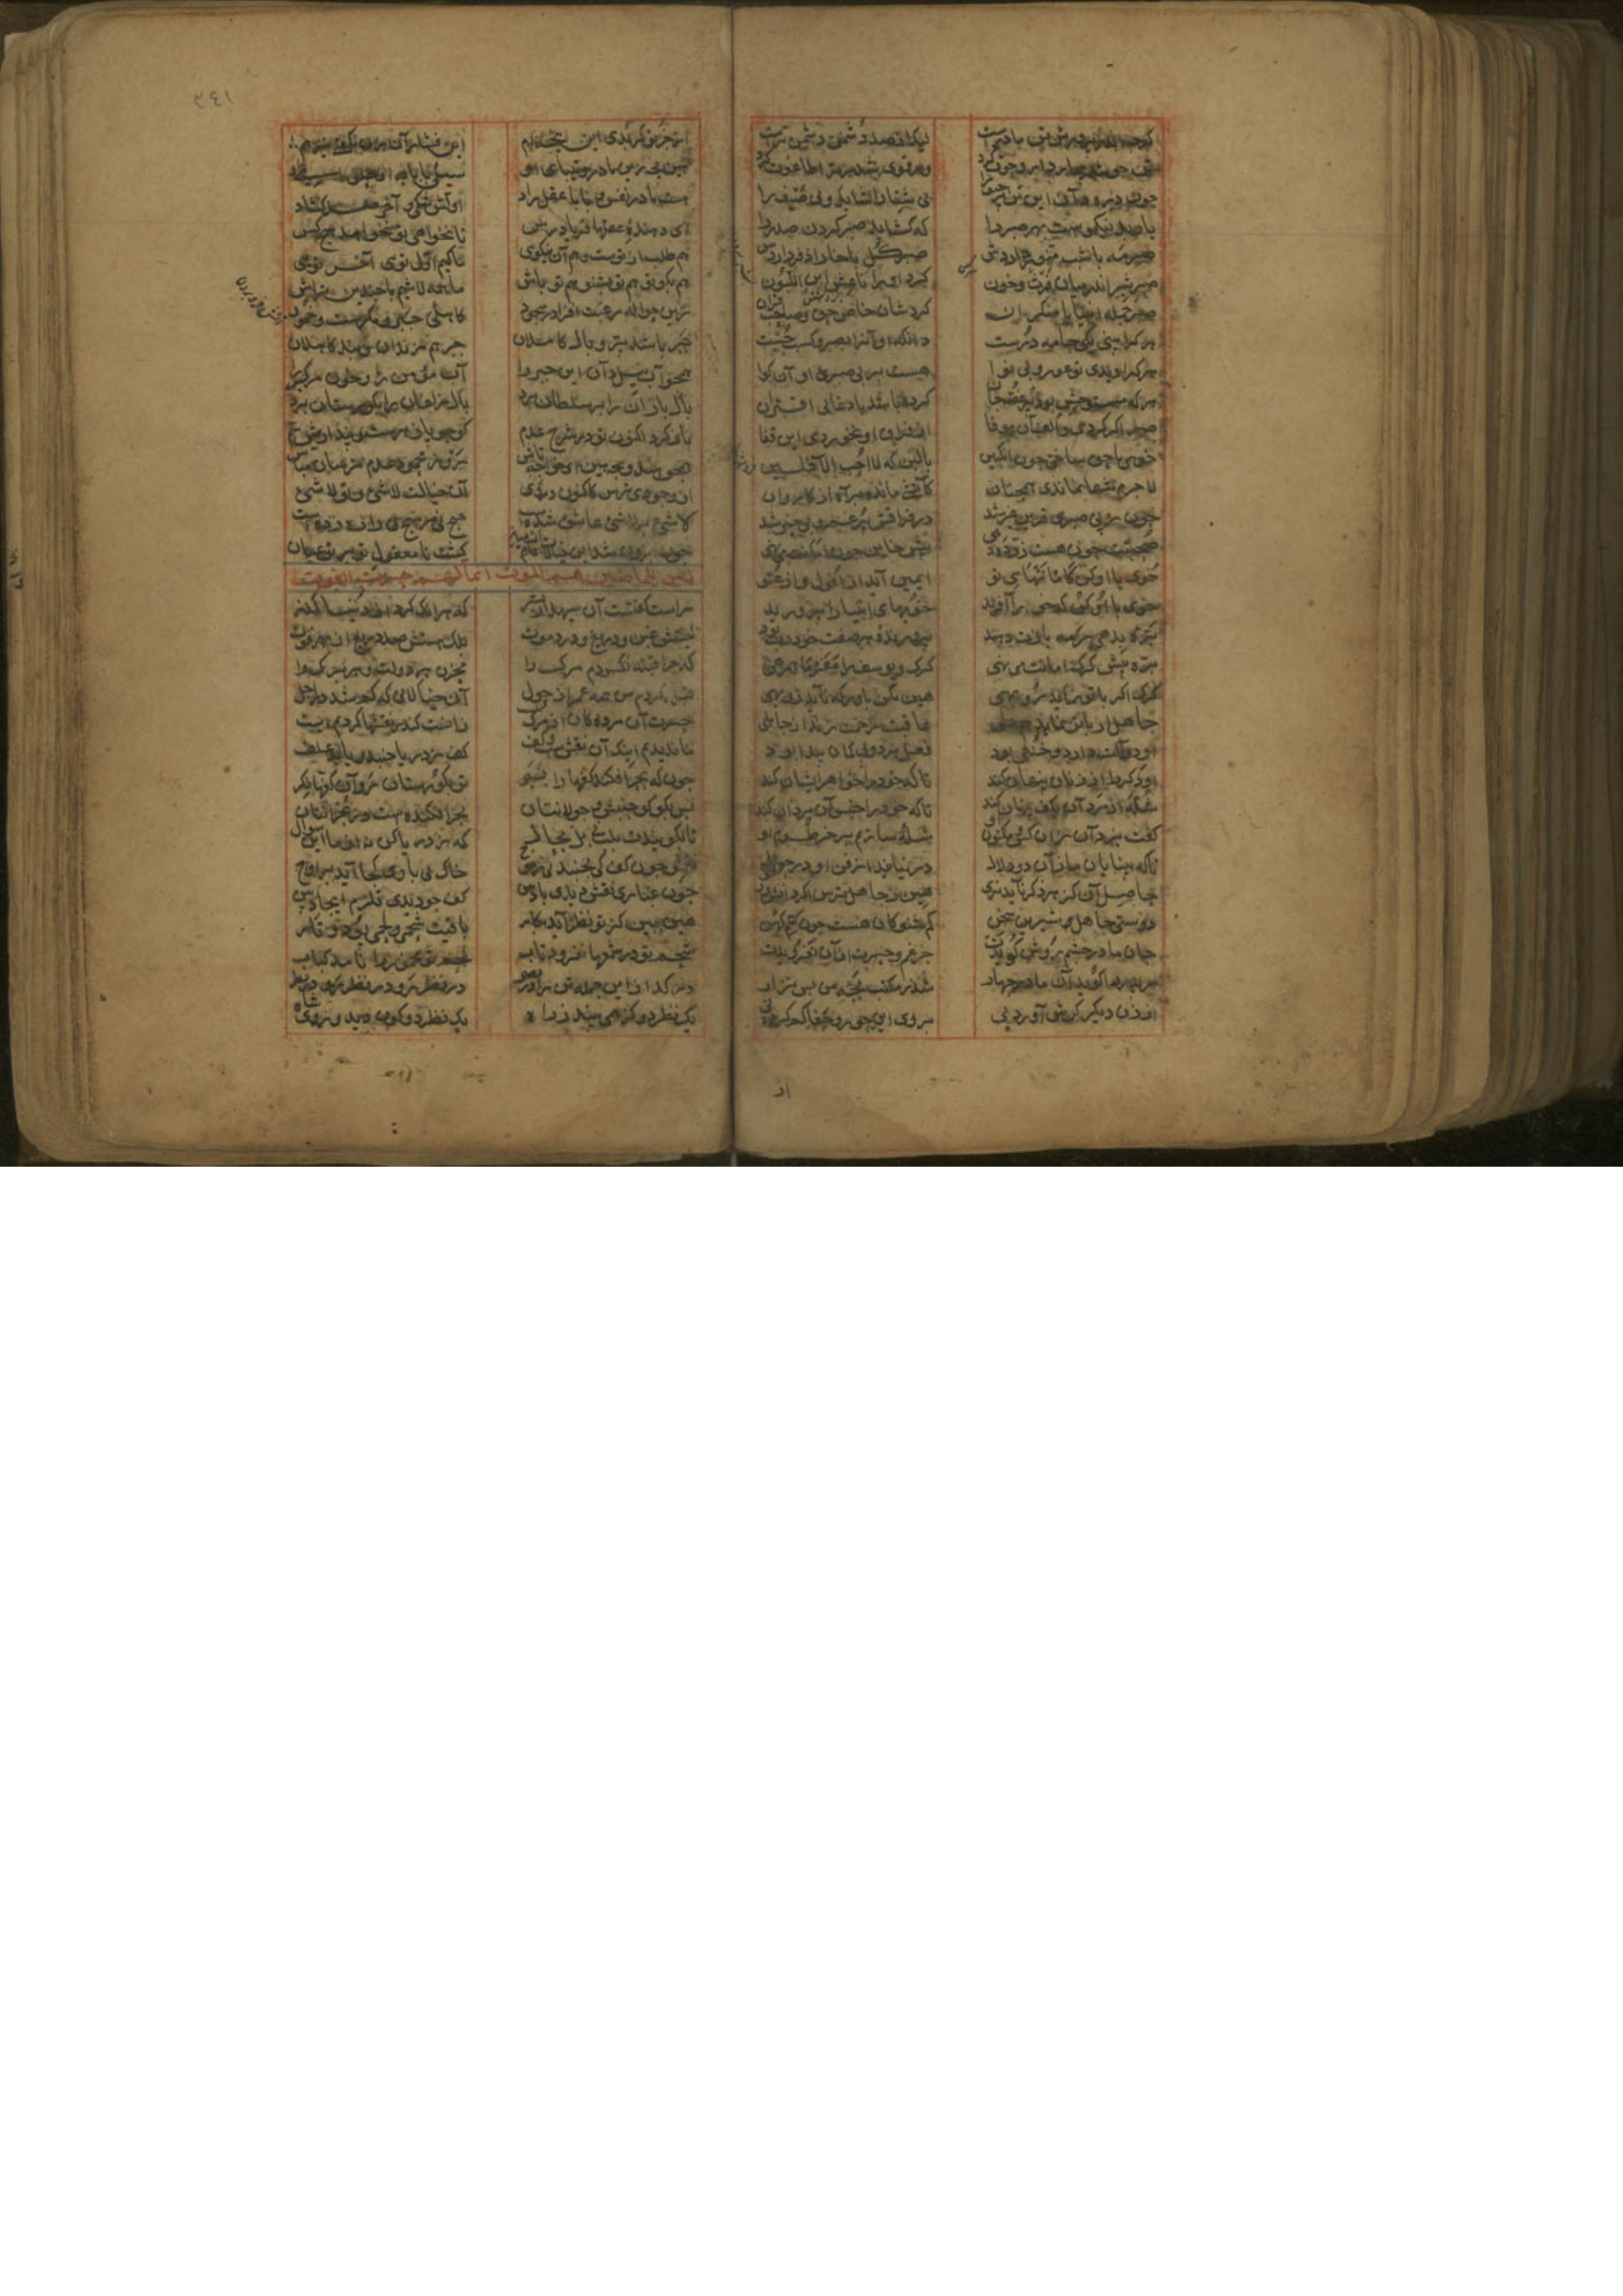 گرچه اندر پرورش تن مادرست لیک از صد دشمنت دشمن ترست
تن چو شد بیمار داروجوت کرد ور قوی شد مر ترا طاغوت کرد
چون زره دان این تن پر حیف را نی شتا را شاید و نی صیف را
یار بد نیکوست بهر صبر را که گشاید صبر کردن صدر را
صبر مه با شب منور داردش صبر گل با خار اذفر داردش
صبر شیر اندر میان فرث و خون کرد او را ناعش ابن اللبون
صبر جمله انبیا با منکران کردشان خاص حق و صاحب قران
هر کرا بینی یکی جامه درست دانکه او آنرا بصبر و کسب جست
هر کرا دیدی تو عور و بی نوا هست بر بی صبری او آن کوا
هر که مستوحش بود پر غصه جان کرده باشد با دغایی اقتران
صبر اکر کردی و الف آن با وفا از فراق او نخوردی این قفا
خوی با حق ساختی چون انکبین با لبن که لا احب الآفلین
لا جرم تنها نماندی همچنان کآتشی مانده براه از کاروان
چون ز بی صبری قرین غیر شد در فراقش پر غم و بی خیر شد
صحبتت چون هست زر ده دهی پیش خاین چون امانت می نهی
خوی با او کن کامانتهای تو ایمن آید از افول و از عتو
خوی با او کن که خو را آفرید خویهای انبیا را پرورید
برۀ بدهی رمه بازت دهد پرورندۀ هر صفت خود رب بود
بره پیش کرک امانت می نهی کرک و یوسف را مفرما همرهی
کرک اکر با تو نماید روبهی هین مکن باور که ناید زو بهی
جاهل ار با تو نماید همدلی عاقبت زخمت زند از جاهلی
او دو آلت دارد و خنثی بود فعل هر دو بی کمان پیدا بود
او ذکر را از زنان پنهان کند تا که خود را خواهر ایشان کند
شله از مردان بکف پنهان کند تا که خود را جنس آن مردان کند
کفت یزدان زان کس مکنون او شلۀ سازیم بر خرطوم او
تا که بینایان ما زان دو دلال در نیایند از فن او در جوال
حاصل آن کز هر ذکر ناید نری هین ز جاهل ترس اکر دانشوری
دوستی جاهل شیرین سخن کم شنو کان هست چون سم کهن
جان مادر چشم روشن کویدت جز غم و حسرت از آن نفزویدت
مر پدر را کوید آن مادر جهار شد ز مکتب بچه من بس نزار
از زن دیکر کرش آوردیی بر وی این جور و جفا کم کردیی
از
٣٤١
از جز تو کر بدی این بچه‌ام این فشار آن زن بکفتی نیز هم
هین بجه زین مادر و تیبای او سیلی بابا به از حلوای او
هست مادر نفس و بابا عقل راد اولش تنکی و آخر صد کشاد
ای دهندۀ عقلها فریاد رس تا نخواهی تو نخواهد هیچ کس
هم طلب از توست و هم آن نیکوی ما کییم اول توی آخر توی
هم بکو تو هم تو بشنو هم تو باش ما همه لاشیم با چندین تراش
زین حواله رغبت افزا در سجود کاهلی جبر مفرست و خمود
جبر باشد پر و بال کاملان جبر هم زندان و بند کاهلان
همچو آب نیل دان این جبر را آب مؤمن را و خون مر کبر را
بال بازان را بر سلطان برد بال زاغان را بکورستان برد
باز کرد اکنون تو در شرح عدم کو چو پازهرست و پنداریش سم
همچو هندو بچه هین ای خواجه تاش رو ز محمود عدم ترسان مباش
از وجودی ترس کاکنون در ویی آن خیالت لاشی و تو لاشیی
لاشیی بر لاشیی عاشق شدست هیچ نی مر هیچ نی را ره زدست
چون برون شد این خیالات از میان کشت نامعقول تو بر تو عیان
لیس للماضین هم الموت انما لهم حسرة الفوت
راست کفتست آن سپهدار بشر که هر آنک کرد از دنیا کذر
نیستش غبن و دریغ و درد موت بلک هستش صد دریغ از بهر فوت
که چرا قبله نکردم مرک را مخزن هر دولت و هر برک را
قبله کردم من همه عمر از حول آن خیالاتی که کم شد در اجل
حسرت آن مردکان از مرک نیست زانست کاندر نقشها کردیم ایست
ما ندیدیم اینک آن نقش است و کف کف ز دریا جنبد و یابد علف
چونکه بحر افکند کفها را ببر تو بکورستان رو آن کفها نکر
پس بکو کو جنبش و جولانتان بحر افکنده است در بحرانتان
تا بکویندت بلب نی بل بحال که ز دریا کن نه از ما این سوال
نقش چون کف کی بجنبد بی ز موج خاک بی بادی کجا آید بر اوج
چون غبار نقش دیدی باد بین کف چو دیدی قلزم ایجاد بین
هین ببین کز تو نظر آید بکار باقیت شحمی و لحمی پود و تار
شحم تو در شمعها نفزود تاب لحم تو مخمور را نامد کباب
در کداز این جمله تن را در بصر در نظر رو در نظر رو در نظر
یک نظر دو کز همی بیند ز راه یک نظر دو کون دید و روی شاه